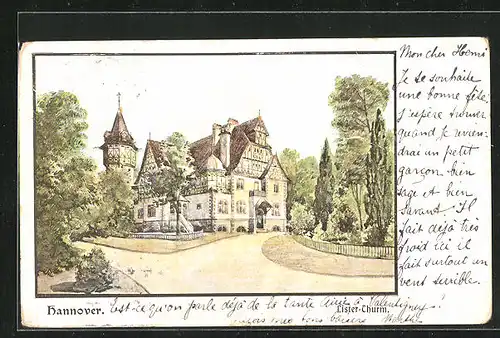 Mon cher Henri
Je te souhaite
une bonne fête
j'espère trouver
quand je revien-
drai un petit
garçon bien
sage et bien
savant. Il
fait déjà très
froid ici il
fait surtout un
vent terrible.
Hannover.
Lister-Thurm.
Est-ce qu'on parle déjà de la tante à Valentigney?
bons baisers